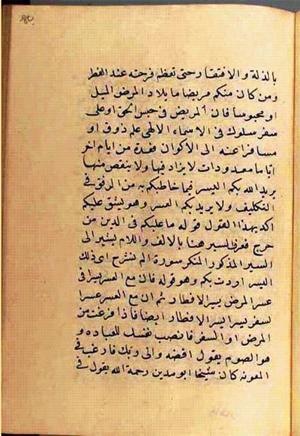 بالذلة والافتقار حتى تعظم فرحته عند الفطر
ومن كان منكم مريضا مابلاد المرض الميل
او محبوسا فان المريض في حبس الحق او على
سفر سلوك فى الاسماء الالهى علم ذوق او
مسافرا عنه الى الاكوان فعدة من ايام اخر
اياما معدودات لا يزاد فيها ولا ينقص منها
يريد الله بكم اليسر فيما خاطبكم به من الرفق فى
التكليف ولا يريد بكم العسر وهو يشق عليكم
اكد بهذا القول قوله ما عليكم فى الدين من
حرج فعرف اليسر هنا بالالف واللام يشير الى
اليسير المذكور المنكر سورة الم نشرح اى ذلك
اليسر اردت بكم وهو قوله فان مع العسر يسرا فى
عسر المرض يسر الافطار ثم ان مع العسر عسر
السفر يسرا يسر الافطار ايضا فاذا فرغت من
المرض او السفر فانصب نفسك للعبادة و
هو الصوم يقول اقضه والى ربك فارغب فى
المعونه كان شيخنا ابو مدين رحمة الله يقول فى